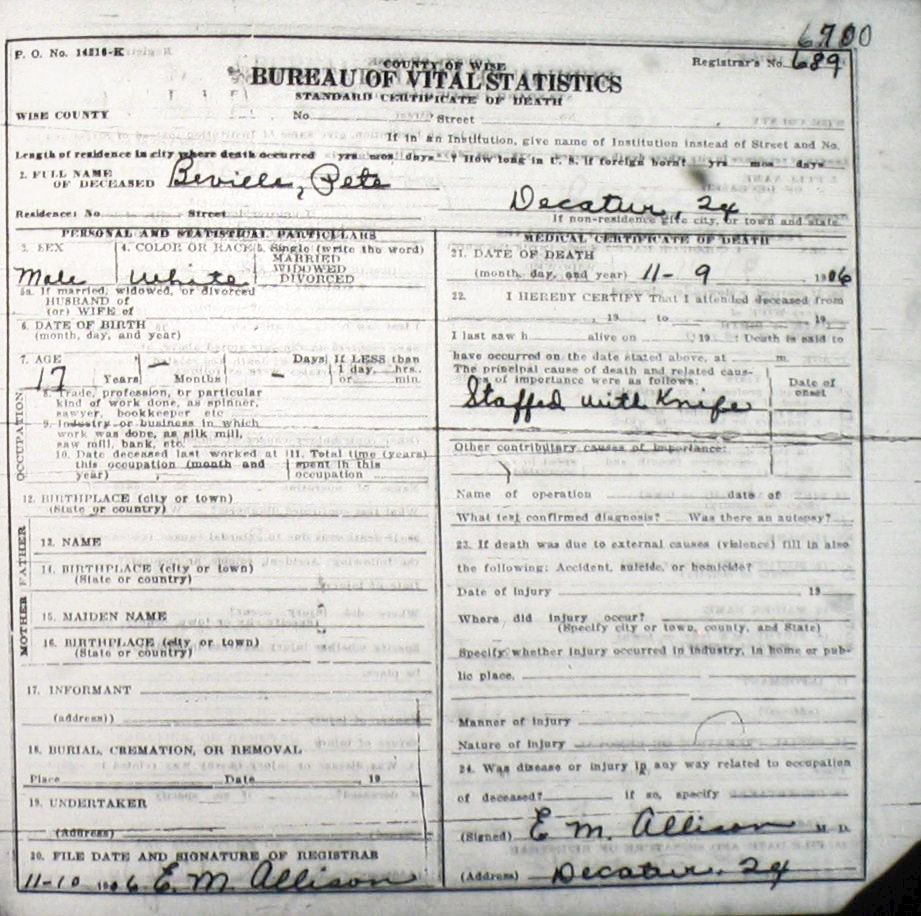 6700
P. O. No. 14216-K
Registrar's No. 689
COUNTY OF WISE
BUREAU OF VITAL STATISTICS
STANDARD CERTIFICATE OF DEATH
WISE COUNTY No Street
If in an Institution, give name of Institution instead of Street and No.
Length of residence in city where death occurred yrs mos days ? How long in U. S. if foreign born? yrs mos days
2. FULL NAME OF DECEASED Beville, Pete
Decatur, 24
Residence: No Street If non-residence give city, or town and state
PERSONAL AND STATISTICAL PARTICULARS
3. SEX Male
4. COLOR OR RACE White
5. Single (write the word)
MARRIED
WIDOWED
DIVORCED
5a. If married, widowed, or divorced
HUSBAND of
(or) WIFE of
6. DATE OF BIRTH
(month, day, and year)
7. AGE 17 Years - Months - Days If LESS than
1 day, hrs.
or min.
OCCUPATION
8. Trade, profession, or particular
kind of work done, as spinner,
sawyer, bookkeeper etc
9. Industry or business in which
work was done, as silk mill,
saw mill, bank, etc.
10. Date deceased last worked at
this occupation (month and
year)
11. Total time (years)
spent in this
occupation
12. BIRTHPLACE (city or town)
(State or country)
FATHER
13. NAME
14. BIRTHPLACE (city or town)
(State or country)
MOTHER
15. MAIDEN NAME
16. BIRTHPLACE (city or town)
(State or country)
17. INFORMANT
(address))
18. BURIAL, CREMATION, OR REMOVAL
Place Date 19
19. UNDERTAKER
(Address)
20. FILE DATE AND SIGNATURE OF REGISTRAR
11-10 1906 E. M. Allison
MEDICAL CERTIFICATE OF DEATH
21. DATE OF DEATH
(month, day, and year) 11-9 1906
22. I HEREBY CERTIFY That I attended deceased from
, 19 to 19
I last saw h alive on 19 : Death is said to
have occurred on the date stated above, at m.
The principal cause of death and related causes
of importance were as follows:
Date of
onset
Staffed with Knife
Other contributory causes of importance:
Name of operation date of
What test confirmed diagnosis? Was there an autopsy?
23. If death was due to external causes (violence) fill in also
the following: Accident, suicide, or homicide?
Date of injury 19
Where did injury occur?
(Specify city or town, county, and State)
Specify whether injury occurred in industry, in home or pub-
lic place.
Manner of injury
Nature of injury
24. Was disease or injury in any way related to occupation
of deceased? if so, specify
(Signed) E. M. Allison M. D.
(Address) Decatur, 24